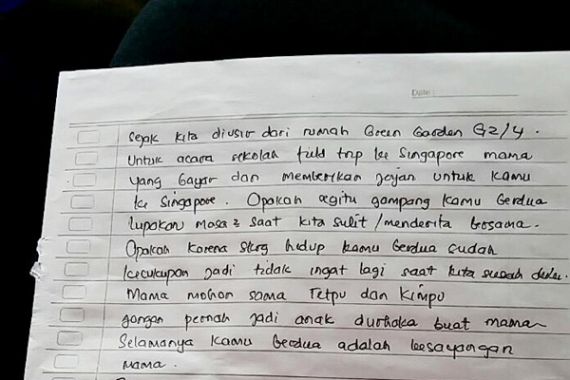 Date :
Sejak kita diusir dari rumah Green Garden G2/4.
Untuk acara sekolah field trip ke Singapore mama
yang bayar dan memberikan jajan untuk kamu
ke Singapore. Apakah segitu gampang kamu berdua
lupakan masa2 saat kita sulit/menderita bersama.
Apakah karena skrg hidup kamu berdua sudah
kecukupan jadi tidak ingat lagi saat kita susah dulu.
Mama mohon sama Tetpu dan Kimpu
jangan pernah jadi anak durhaka buat mama
Selamanya kamu berdua adalah kesayangan
mama.